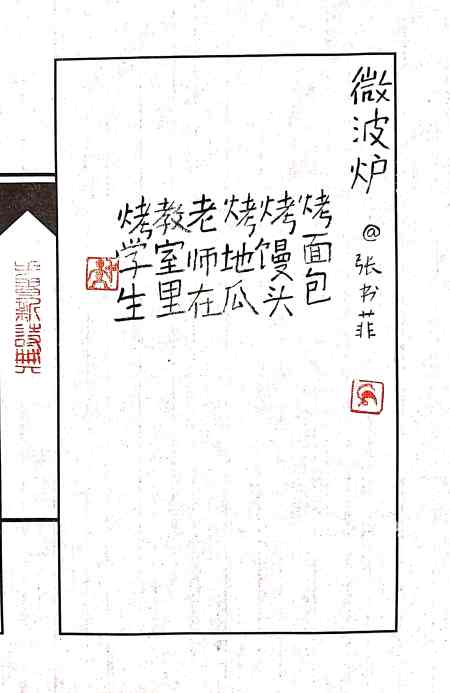 微波炉
@张书菲
烤面包
烤馒头
烤地瓜
老师在
教室里
烤学生